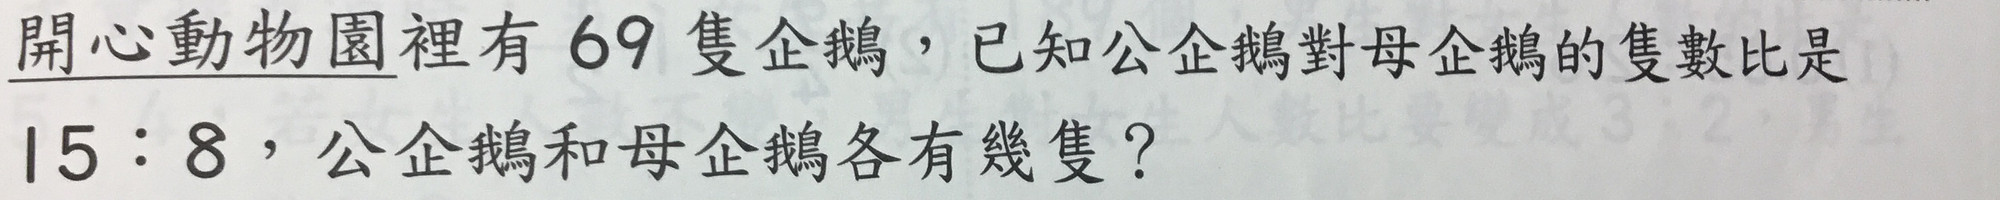 開心動物園裡有 69 隻企鵝，已知公企鵝對母企鵝的隻數比是
15：8，公企鵝和母企鵝各有幾隻？